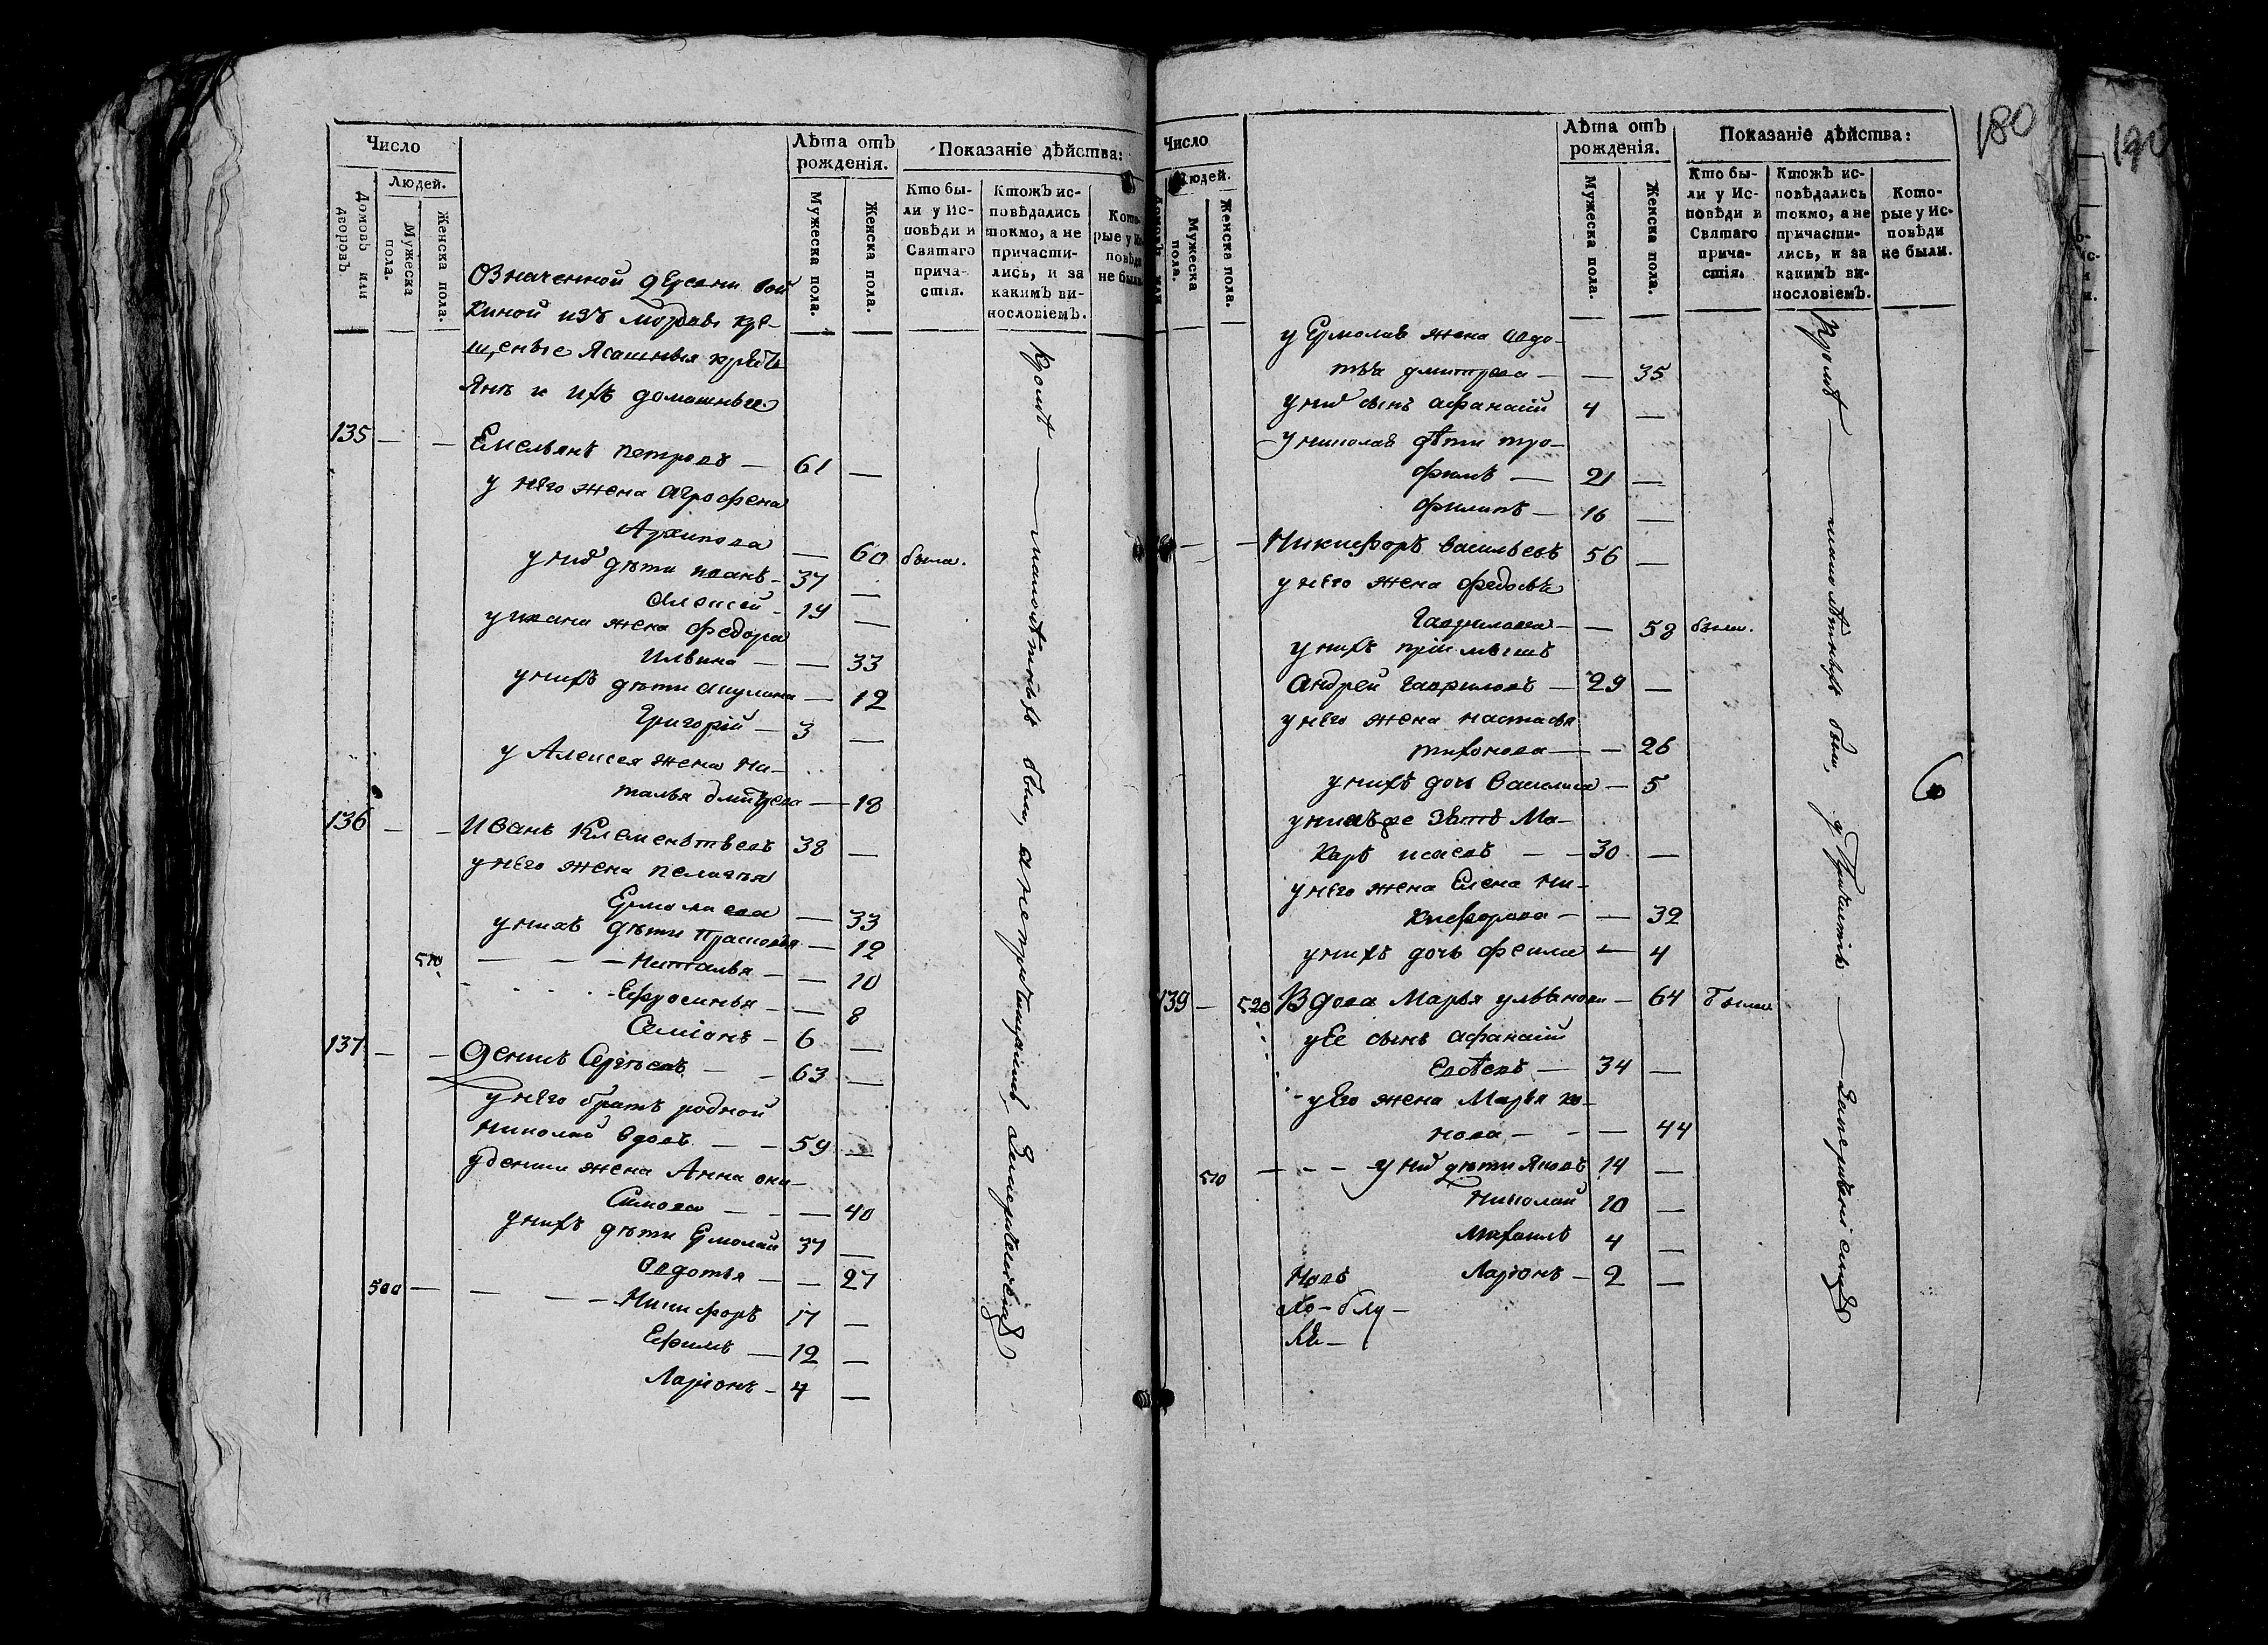 Число
Людей.
Домовъ или дворовъ.
Мужеска пола.
Женска пола.
Лѣта отъ рожденія.
Мужеска пола.
Женска пола.
Показаніе дѣйства:
Кто бы-
ли у Ис-
повѣди и
Святаго
прича-
стія.
Ктожъ ис-
повѣдались
токмо, а не
причасти-
лись, и за
какимъ ви-
нословіемъ.
Кото-
рые у Ис-
повѣди
не были.
Означенной деревни
киной изъ мордвы кре-
щеные Ясашныя крестъ
Янъ и ихъ домашные
135 — — Емельянъ петровъ — 61 —
у него жена агрофена
Архипова — 60 была.
у нихъ дѣти иванъ - 37 —
алексей - 19 —
у ивана жена федора
Ильина — — 33
у нихъ дѣти акулина — 12
Григорій — 3 —
у Алексея жена на-
талья — 18
136 — — Иванъ 38 —
у него жена пелагея
Ермолаева — 33
у нихъ дѣти Прасковья — 12
510 — — — Наталья — — 10
Ефросинья — — 8
Симіонъ — 6 —
137 — — Денисъ Сергѣевъ — — 63 —
у него братъ родной
Николай вдовъ — — 59 —
у дениса жена Анна они-
симова — — — 40
у нихъ дѣти Ермолай 37 —
Овдотья — — 27
500 — — — — Никифоръ 17 —
Ефимъ — 12 —
Ларіонъ — 4 —
Кромѣ — малолѣтнихъ были, а не
180
Число
Людей.
Мужеска пола.
Женска пола.
Лѣта отъ рожденія.
Мужеска пола.
Женска пола.
Показаніе дѣйства:
Кто бы-
ли у Ис-
повѣди и
Святаго
прича-
стія.
Ктожъ ис-
повѣдались
токмо, а не
причасти-
лись, и за
какимъ ви-
нословіемъ.
Кото-
рые у Ис-
повѣди
не были.
у Ермолая жена авдо-
тья дмитрева — — 35
у нихъ сынъ афанасій 4 —
у николая дѣти тро-
фимъ — 21 —
филипъ — 16 —
— — Никифоръ васильевъ 56 —
у него жена федосья
Гаврилова — — 58 были.
у нихъ пріимышъ
андрей гавриловъ — 29 —
у него жена настасья
тихонова — — 26
у нихъ дочь василиса — 5
у нихъ же зять Ма-
каръ исаевъ — — 30 —
у него жена Елена ни-
кифорова — — 32
у нихъ дочь — 4
139 — 520 Вдова Марья ульянова — 64 были
у Ее сынъ афанасій
— 34 —
у Его жена Марья ко-
нова — — — 44
510 — — — у нихъ дѣти Яковъ 14 —
Николай 10 —
Михаилъ 4 —
Ларіонъ — 2 —
Кромѣ — малолѣтныхъ были, у
190